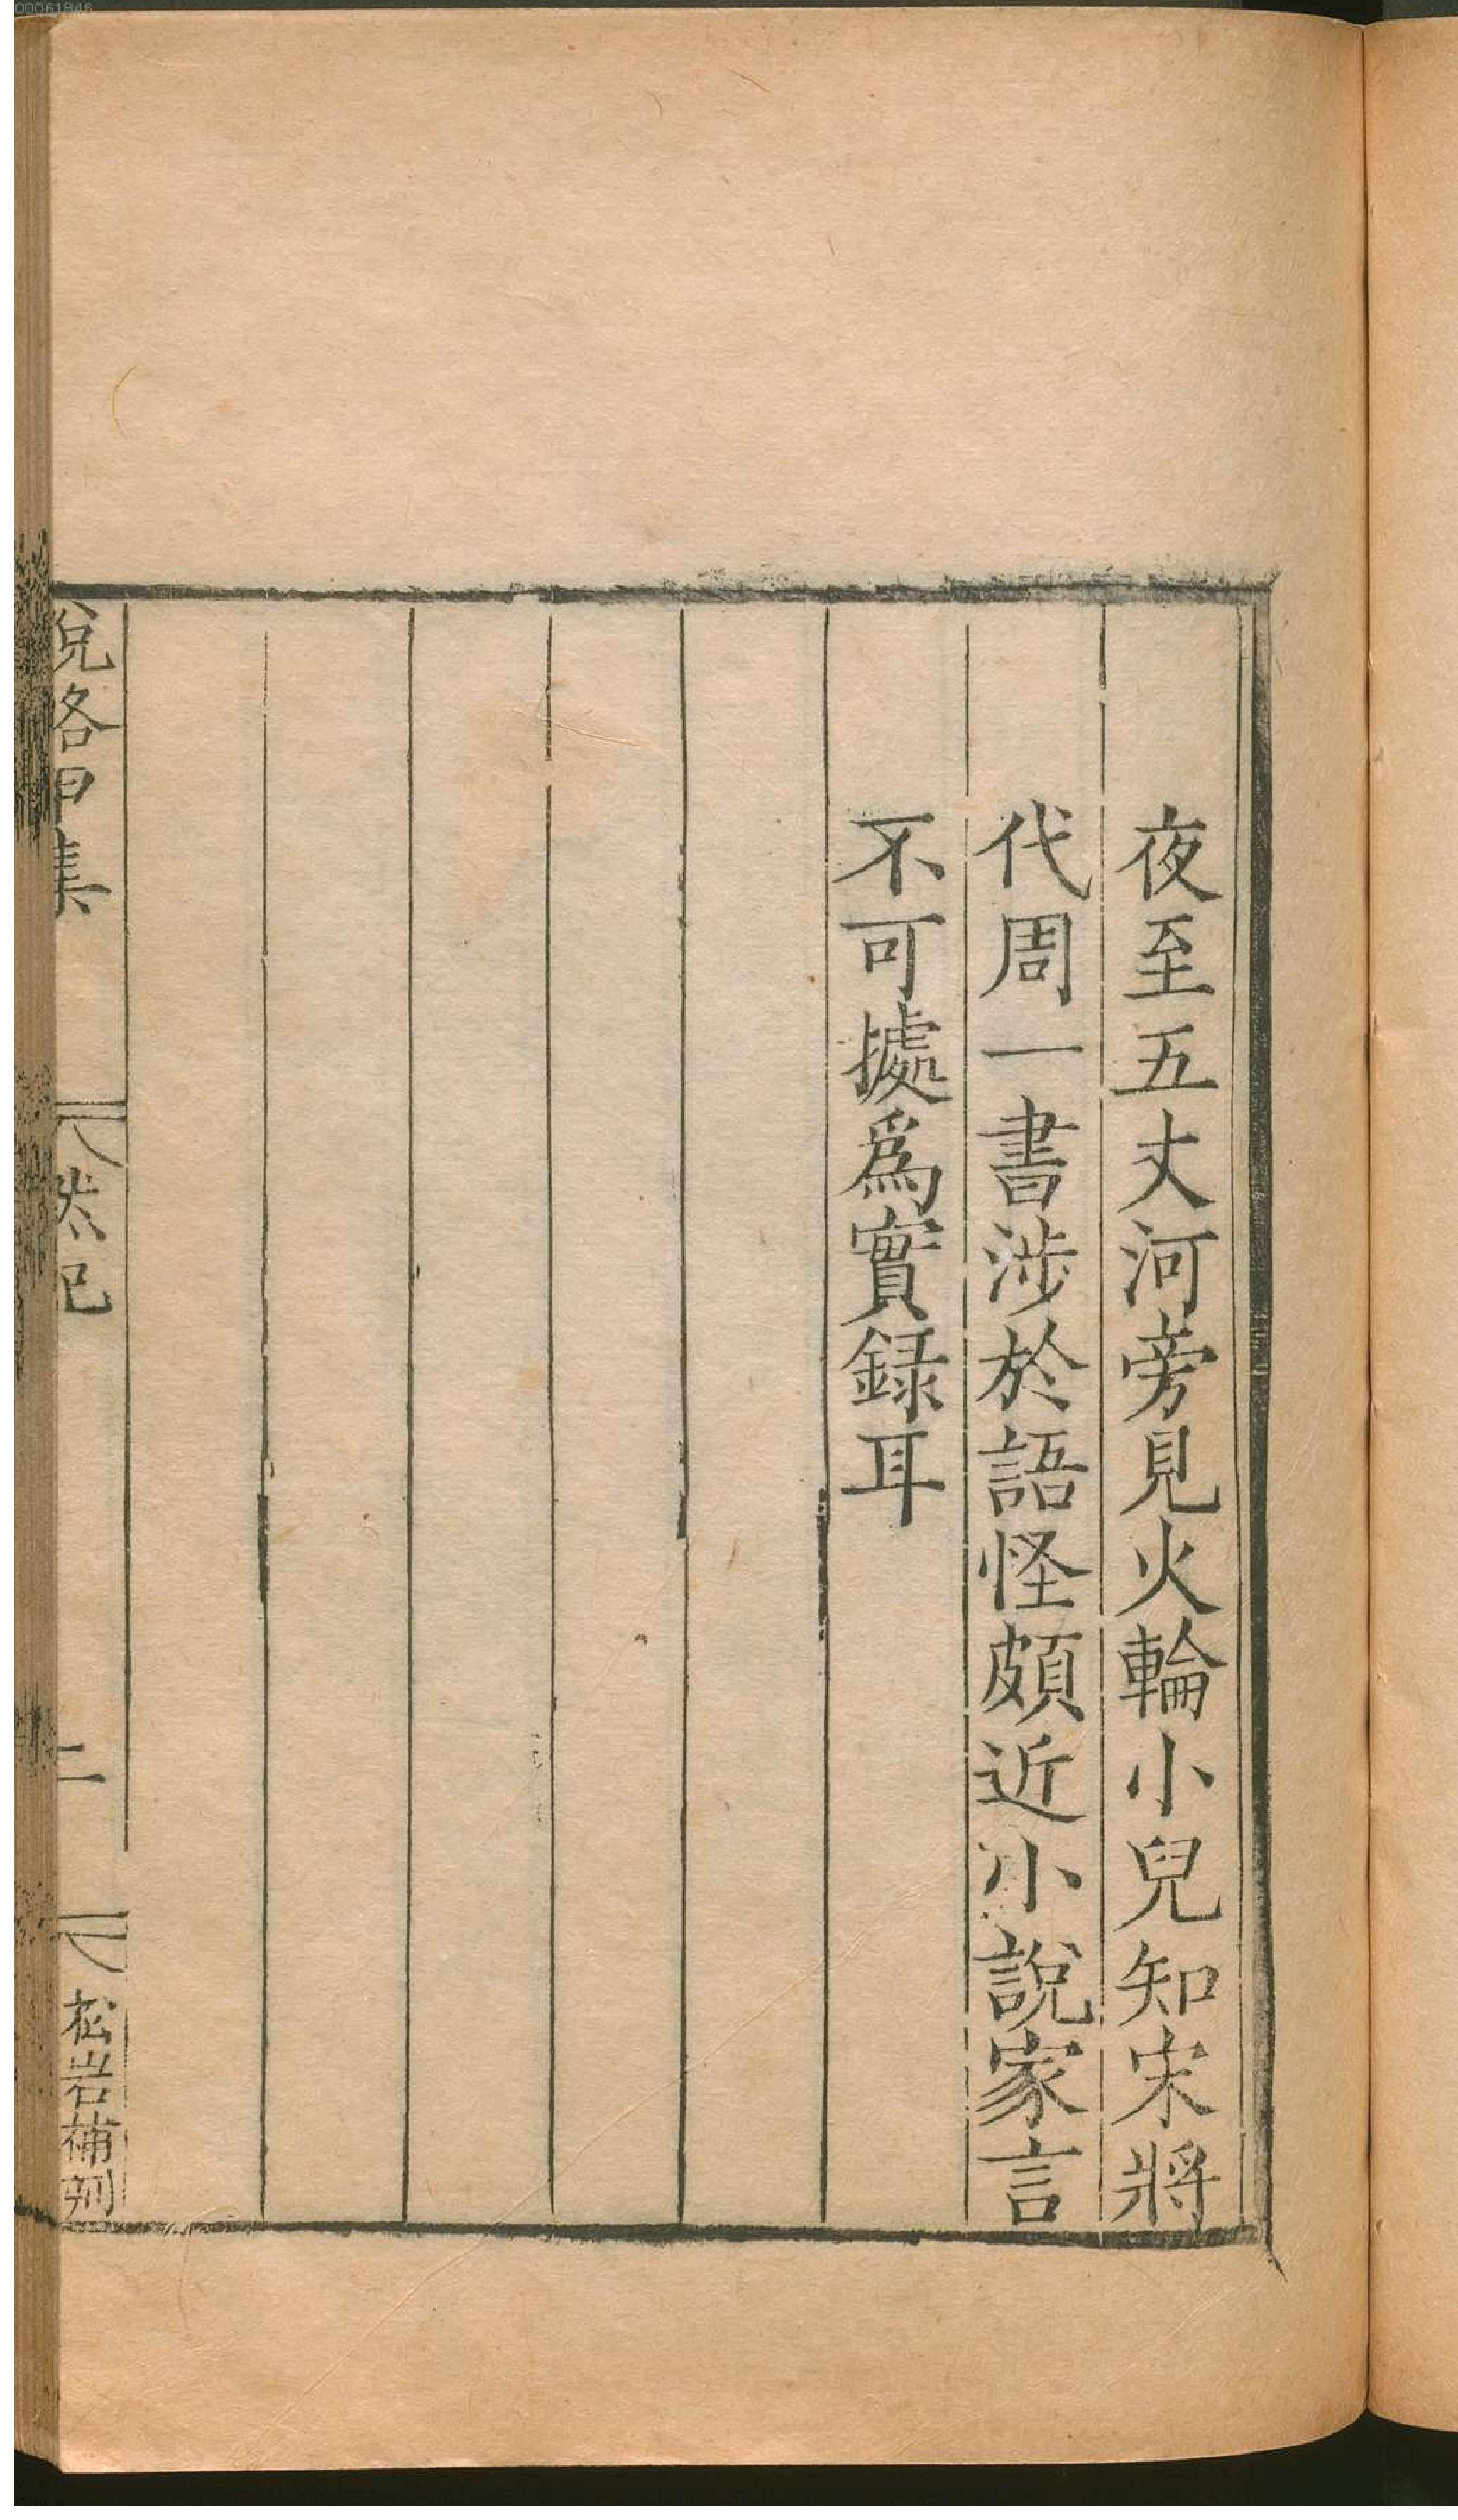 夜至五丈河旁見火輪小兒知宋將
代周一書涉於語怪頗近小說家言
不可據爲實録耳
說畧甲集
然已
二
松岩補刻
00061846